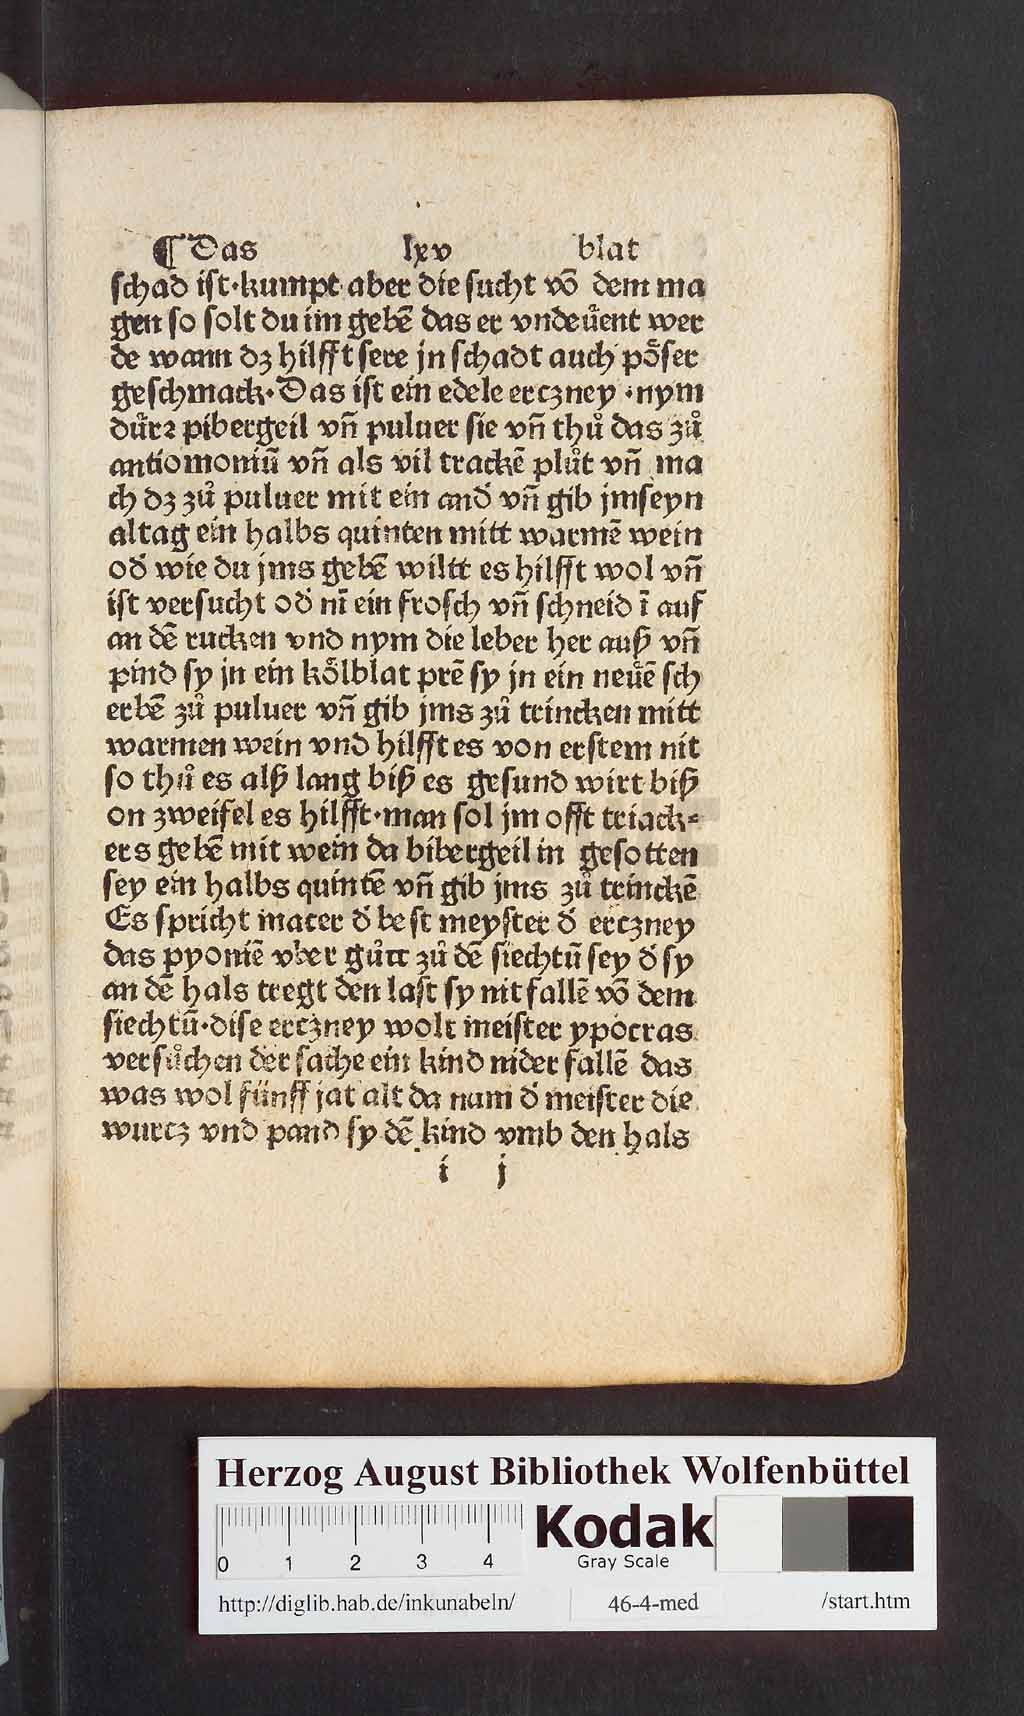 ¶ Das lxv blat
schad ist·kumpt aber die sucht vō dem ma
gen so solt du im gebē das er vndeuͤent wer
de wann dz hilfft sere jn schadt auch poͤser
geschmack·Das ist ein edele erczney ·nym
duͤrꝛ pibergeil vñ puluer sie vñ thuͦ das zuͦ
antiomoniū vñ als vil trackē pluͦt vñ ma
ch dz zuͦ puluer mit ein and̕ vñ gib jmseyn
altag ein halbs quinten mitt warmē wein
od̕ wie du jms gebē wiltt es hilfft wol vñ
ist versucht od̕ nī ein frosch vñ schneid ī auf
an dē rucken vnd nym die leber her auß vñ
pind sy jn ein koͤlblat prē sy jn ein neuͤē sch
erbē zuͦ puluer vñ gib jms zuͦ trincken mitt
warmen wein vnd hilfft es von erstem nit
so thuͦ es alß lang biß es gesund wirt biß
on zweifel es hilfft·man sol jm offt triack⸗
ers gebē mit wein da bibergeil in gesotten
sey ein halbs quintē vñ gib jms zuͦ trinckē
Es spricht macer d̕ best meyster d̕ erczney
das pyoniē vber guͦtt zuͦ dē siechtū sey d̕ sy
an dē hals tregt den last sy nit fallē vō dem
siechtū·dise erczney wolt meister ypocras
versuͦchen der sache ein kind nider fallē das
was wol fünff jat alt da nam d̕ meister die
wurcz vnd pand sy dē kind vmb den hals
i j
Herzog August Bibliothek Wolfenbüttel
0 1 2 3 4
Kodak
Gray Scale
http://diglib.hab.de/inkunabeln/ 46-4-med /start.htm